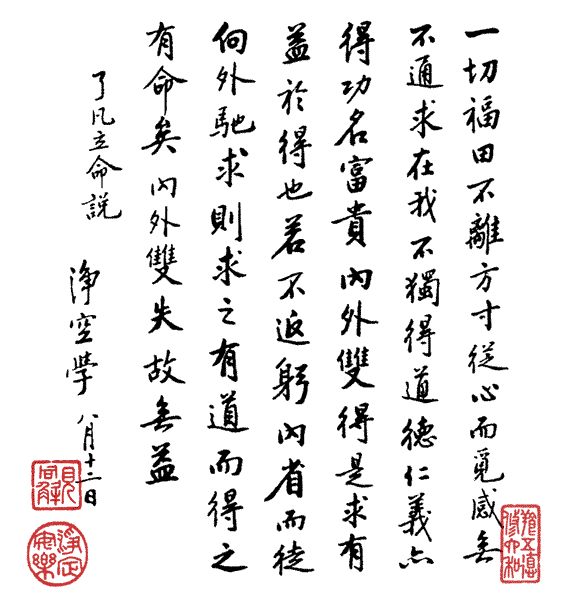 一切福田不離方寸從心而覓感無
不通求在我不獨得道德仁義亦
得功名富貴內外雙得是求有
益於得也若不返躬內省而徒
向外馳求則求之有道而得之
有命矣內外雙失故無益
了凡立命說
淨空學 八月十二日